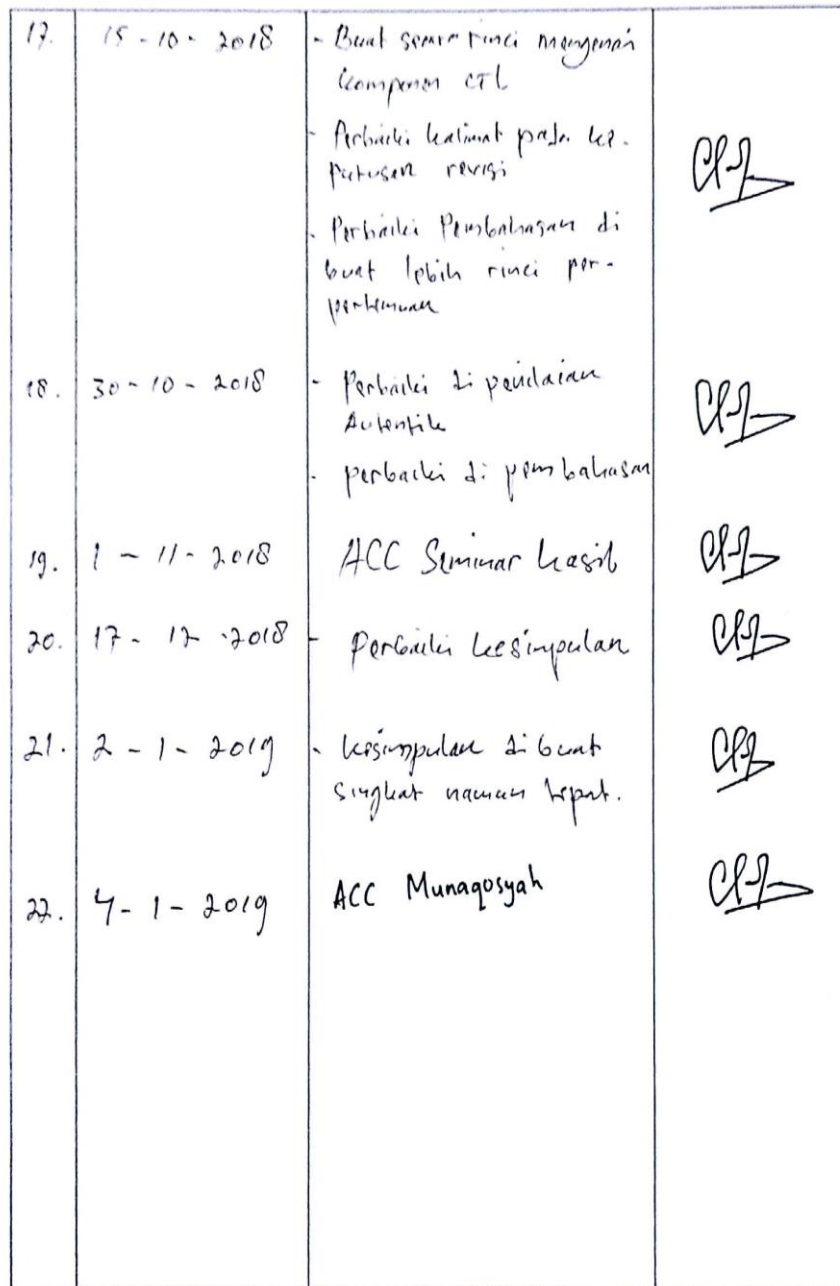 17. 15 - 10 - 2018 - Buat secara rinci mengenai
komponen CTL
- Perbaiki kalimat pada ke-
putusan revisi
- Perbaiki Pembahasan di
buat lebih rinci per-
pertemuan
18. 30 - 10 - 2018 - Perbaiki di penilaian
Autentik
- perbaiki di pembahasan
19. 1 - 11 - 2018 ACC Seminar hasil
20. 17 - 12 - 2018 - Perbaiki kesimpulan
21. 2 - 1 - 2019 - kesimpulan di buat
singkat namun tepat.
22. 4 - 1 - 2019 ACC Munaqosyah